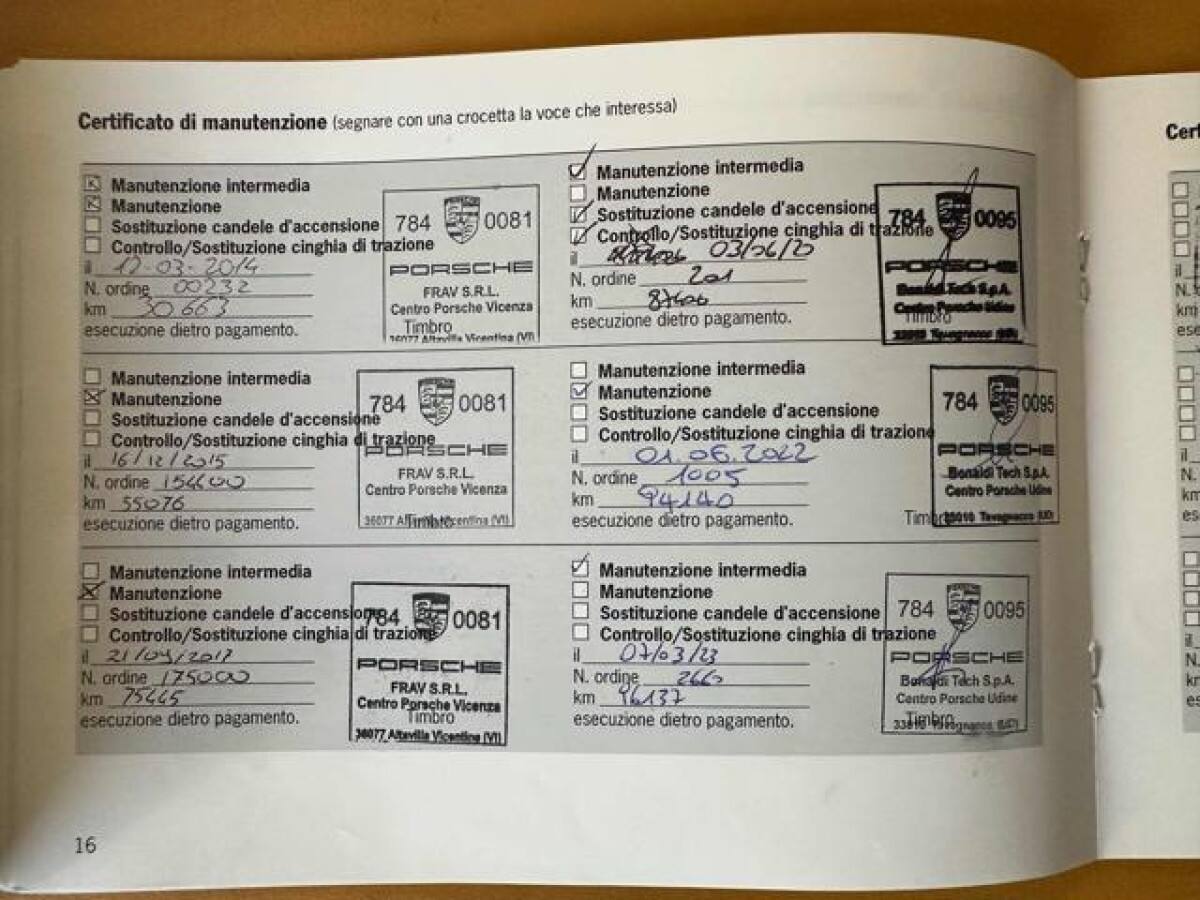 Certificato di manutenzione (segnare con una crocetta la voce che interessa)
Manutenzione intermedia
Manutenzione
Sostituzione candele d'accensione
Controllo/Sostituzione cinghia di trazione
il 12-03-2014
N. ordine 00232
km 30663
esecuzione dietro pagamento.
784 0081
PORSCHE
FRAV S.R.L.
Centro Porsche Vicenza
Timbro
36077 Altavilla Vicentina (VI)
Manutenzione intermedia
Manutenzione
Sostituzione candele d'accensione
Controllo/Sostituzione cinghia di trazione
il 16/12/2015
N. ordine 154600
km 55076
esecuzione dietro pagamento.
784 0081
PORSCHE
FRAV S.R.L.
Centro Porsche Vicenza
Timbro
36077 Altavilla Vicentina (VI)
Manutenzione intermedia
Manutenzione
Sostituzione candele d'accensione
Controllo/Sostituzione cinghia di trazione
il 21/04/2017
N. ordine 175000
km 75445
esecuzione dietro pagamento.
784 0081
PORSCHE
FRAV S.R.L.
Centro Porsche Vicenza
Timbro
36077 Altavilla Vicentina (VI)
Manutenzione intermedia
Manutenzione
Sostituzione candele d'accensione
Controllo/Sostituzione cinghia di trazione
il 03/06/20
N. ordine 201
km
esecuzione dietro pagamento.
784 0095
PORSCHE
Bonaldi Tech S.p.A.
Centro Porsche Udine
Timbro
33010 Tavagnacco (UD)
Manutenzione intermedia
Manutenzione
Sostituzione candele d'accensione
Controllo/Sostituzione cinghia di trazione
il 01.06.2022
N. ordine 1005
km 94140
esecuzione dietro pagamento.
784 0095
PORSCHE
Bonaldi Tech S.p.A.
Centro Porsche Udine
Timbro
33010 Tavagnacco (UD)
Manutenzione intermedia
Manutenzione
Sostituzione candele d'accensione
Controllo/Sostituzione cinghia di trazione
il 07/03/23
N. ordine 2660
km 96137
esecuzione dietro pagamento.
784 0095
PORSCHE
Bonaldi Tech S.p.A.
Centro Porsche Udine
Timbro
33010 Tavagnacco (UD)
16
Cert
il
N.
km
ese
il
N.
km
es
il
N.
km
es